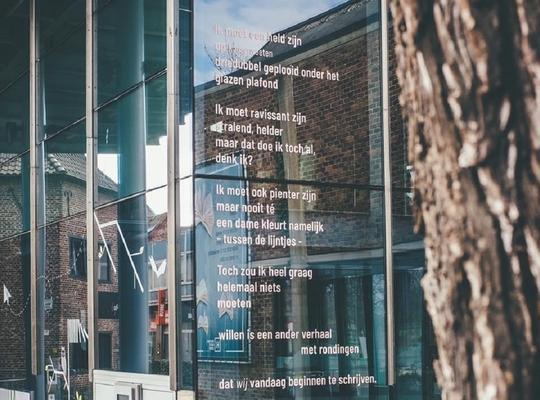 Ik moet een held zijn
driedubbel geplooid onder het
glazen plafond
Ik moet ravissant zijn
stralend, helder
maar dat doe ik toch al,
denk ik?
Ik moet ook pienter zijn
maar nooit té
een dame kleurt namelijk
- tussen de lijntjes -
Toch zou ik heel graag
helemaal niets
moeten
willen is een ander verhaal
met rondingen
dat wij vandaag beginnen te schrijven.